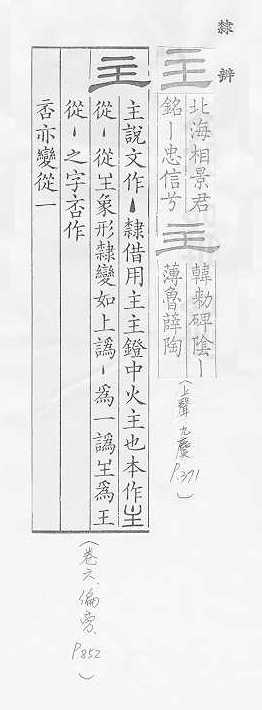 隸辨
主
北海相景君
銘丨忠信兮
主
韓勑碑陰丨
薄魯薛陶
(上聲 九麌 P.371)
主
主說文作丶隸借用主主鐙中火主也本作𡈼
從丶從𡈼象形隸變如上譌丶爲一譌𡈼爲王
從丶之字㕻作
否亦變從一
(卷六、偏旁、P.852)